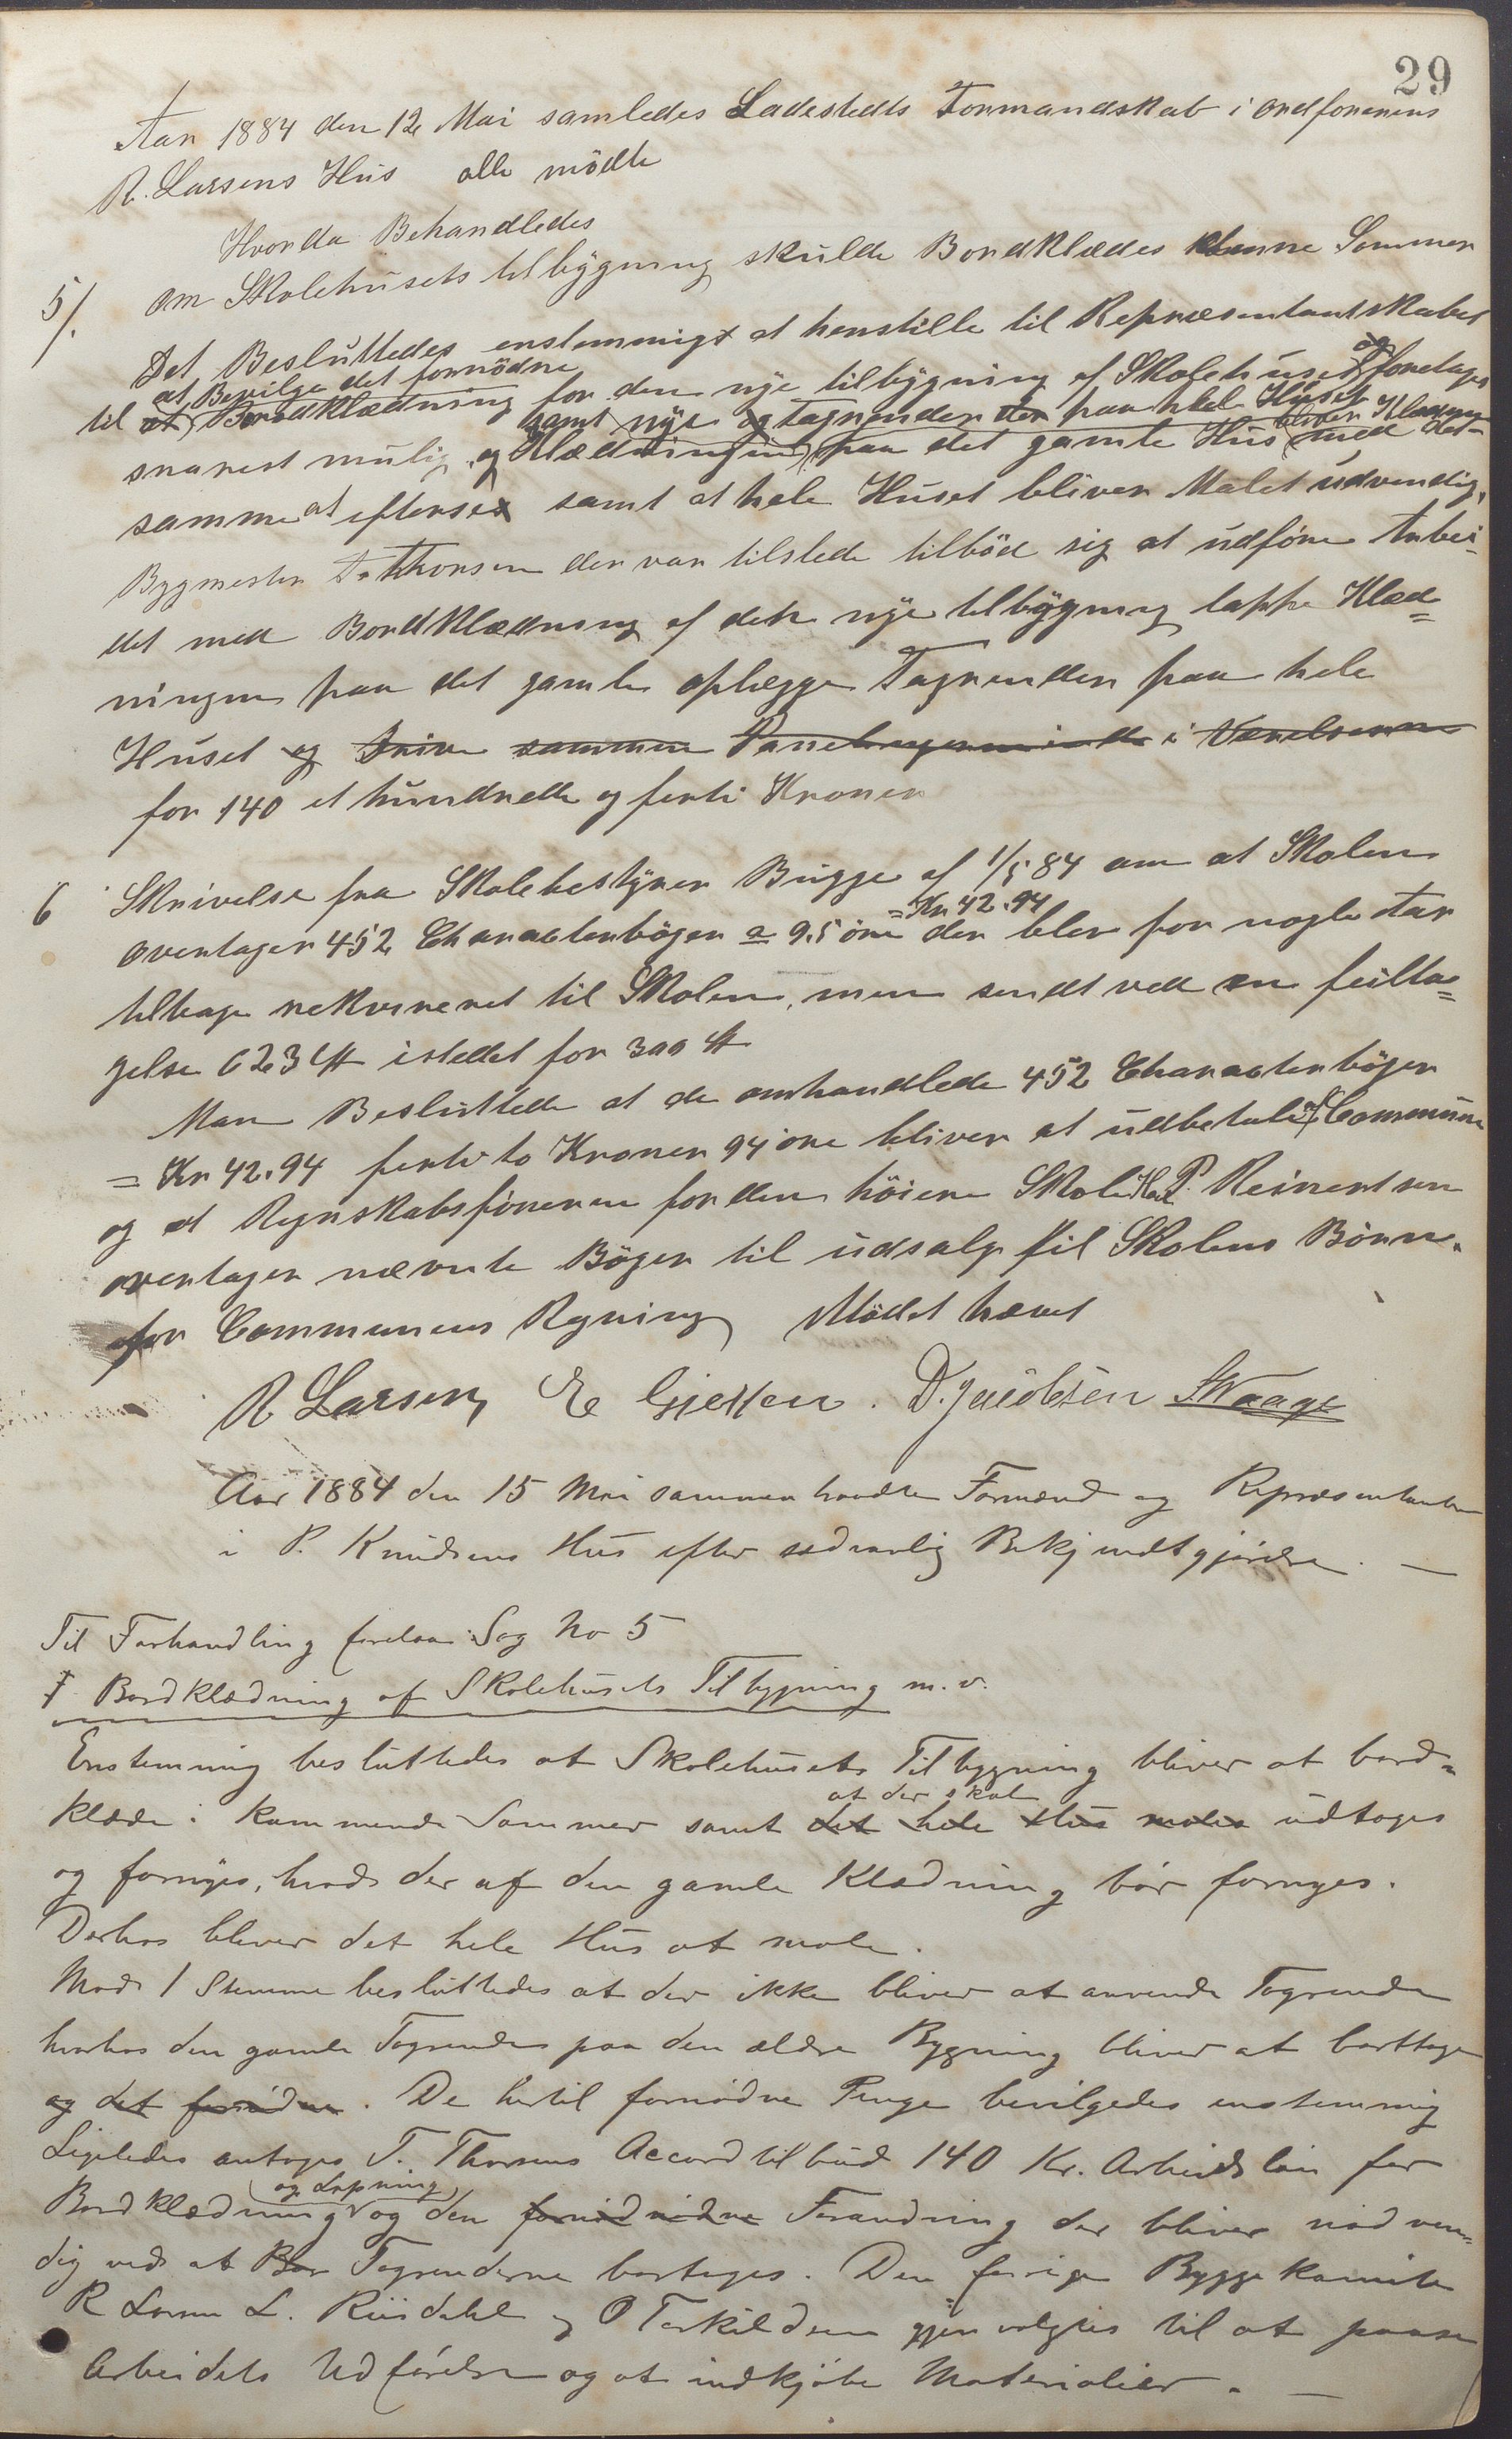 29
Aar 1884 den 12 Mai samledes Ladestedts Formandskab i Ordførerens
R. Larsens Hus alle mödte
Hvorda Behandledes
5/. Om Skolehusets tilbÿgning skulde Bordklædes denne Sommer
Det Besluttedes enstemmigt at henstille til Repræsentantskabet
at Bevilge det fornödne
til et Bordklædning for den nÿe tilbÿgning af Skolehuset og foretages
samt nÿe og tagrender der paa hele Huset bliver Klædnin
snarest mulig og Klædningen paa det gamle Hus med det-
samme at efterse samt at hele Huset bliver Malet udvendig,
Bygmester T. Thorsen der var tilstede tilböd sig at udföre Arbei-
det med Bordklædning af den nÿe tilbÿgning lappe Klæd=
ningen paa det gamle oplægge Tagrender paa hele
Huset og Drive sammen Panelingen inde i Værelserne
for 140 et hundrede og förti Kroner
6 Skrivelse fra Skolebestÿrer Bugge af 1/5 84 om at Skolen
= Kr 42.94
overtager 452 Charakterböger a 9.5 öre der blev for nogle Aar
tilbage rekvireret til Skolen, men sendt ved en feilta=
gelse 623 # istedet for 300 #
Man Besluttede at de omhandlede 452 Charakterböger
= Kr 42.94 förti to Kroner 94 öre bliver at udbetale af Commune
og at Regnskabsföreren for den höiere Skole Hr P. Reinertsen
overtager nævnte Böger til udsalg til Skolens Börn.
for Communens Regning Mödet hævet
R Larsen E Gjessen. D. Jacobsen SWaage
Aar 1884 den 15 Mai sammentraadte Formænd og Repræsentanter
i P. Knudsens Hus efter sædvanlig Bekjendtgjørelse. —
Til Forhandling forelaa: Sag No 5
Bordklædning af Skolehusets Tilbygning m. v.
Enstemmig besluttedes at Skolehusets Tilbygning bliver at bord=
at der skal
klæde i kommende Sommer samt det hele Hus males udtages
og fornyes, hvad der af den gamle Klædning bör fornyes.
Derhos bliver det hele Hus at male.
Mod 1 Stemme besluttedes at der ikke bliver at anvende Tagrender
hvorhos den gamle Tagrende paa den ældre Bygning bliver at borttage
og det fornødne. De hertil fornødne Penge bevilgedes enstemmig
Ligeledes antoges T. Thorsens Accordtilbud 140 Kr. Arbeidslön for
og Lapning
Bordklædning og den fornødne Forandring der bliver nödven-
dig ved at Bor Tagrenderne borttages. Den forrige Byggekomite
R Larsen L. Riisdahl og O Torkildsen gjenvalgtes til at paase
Arbeidets Udførelse og at indkjøbe Materialier. —